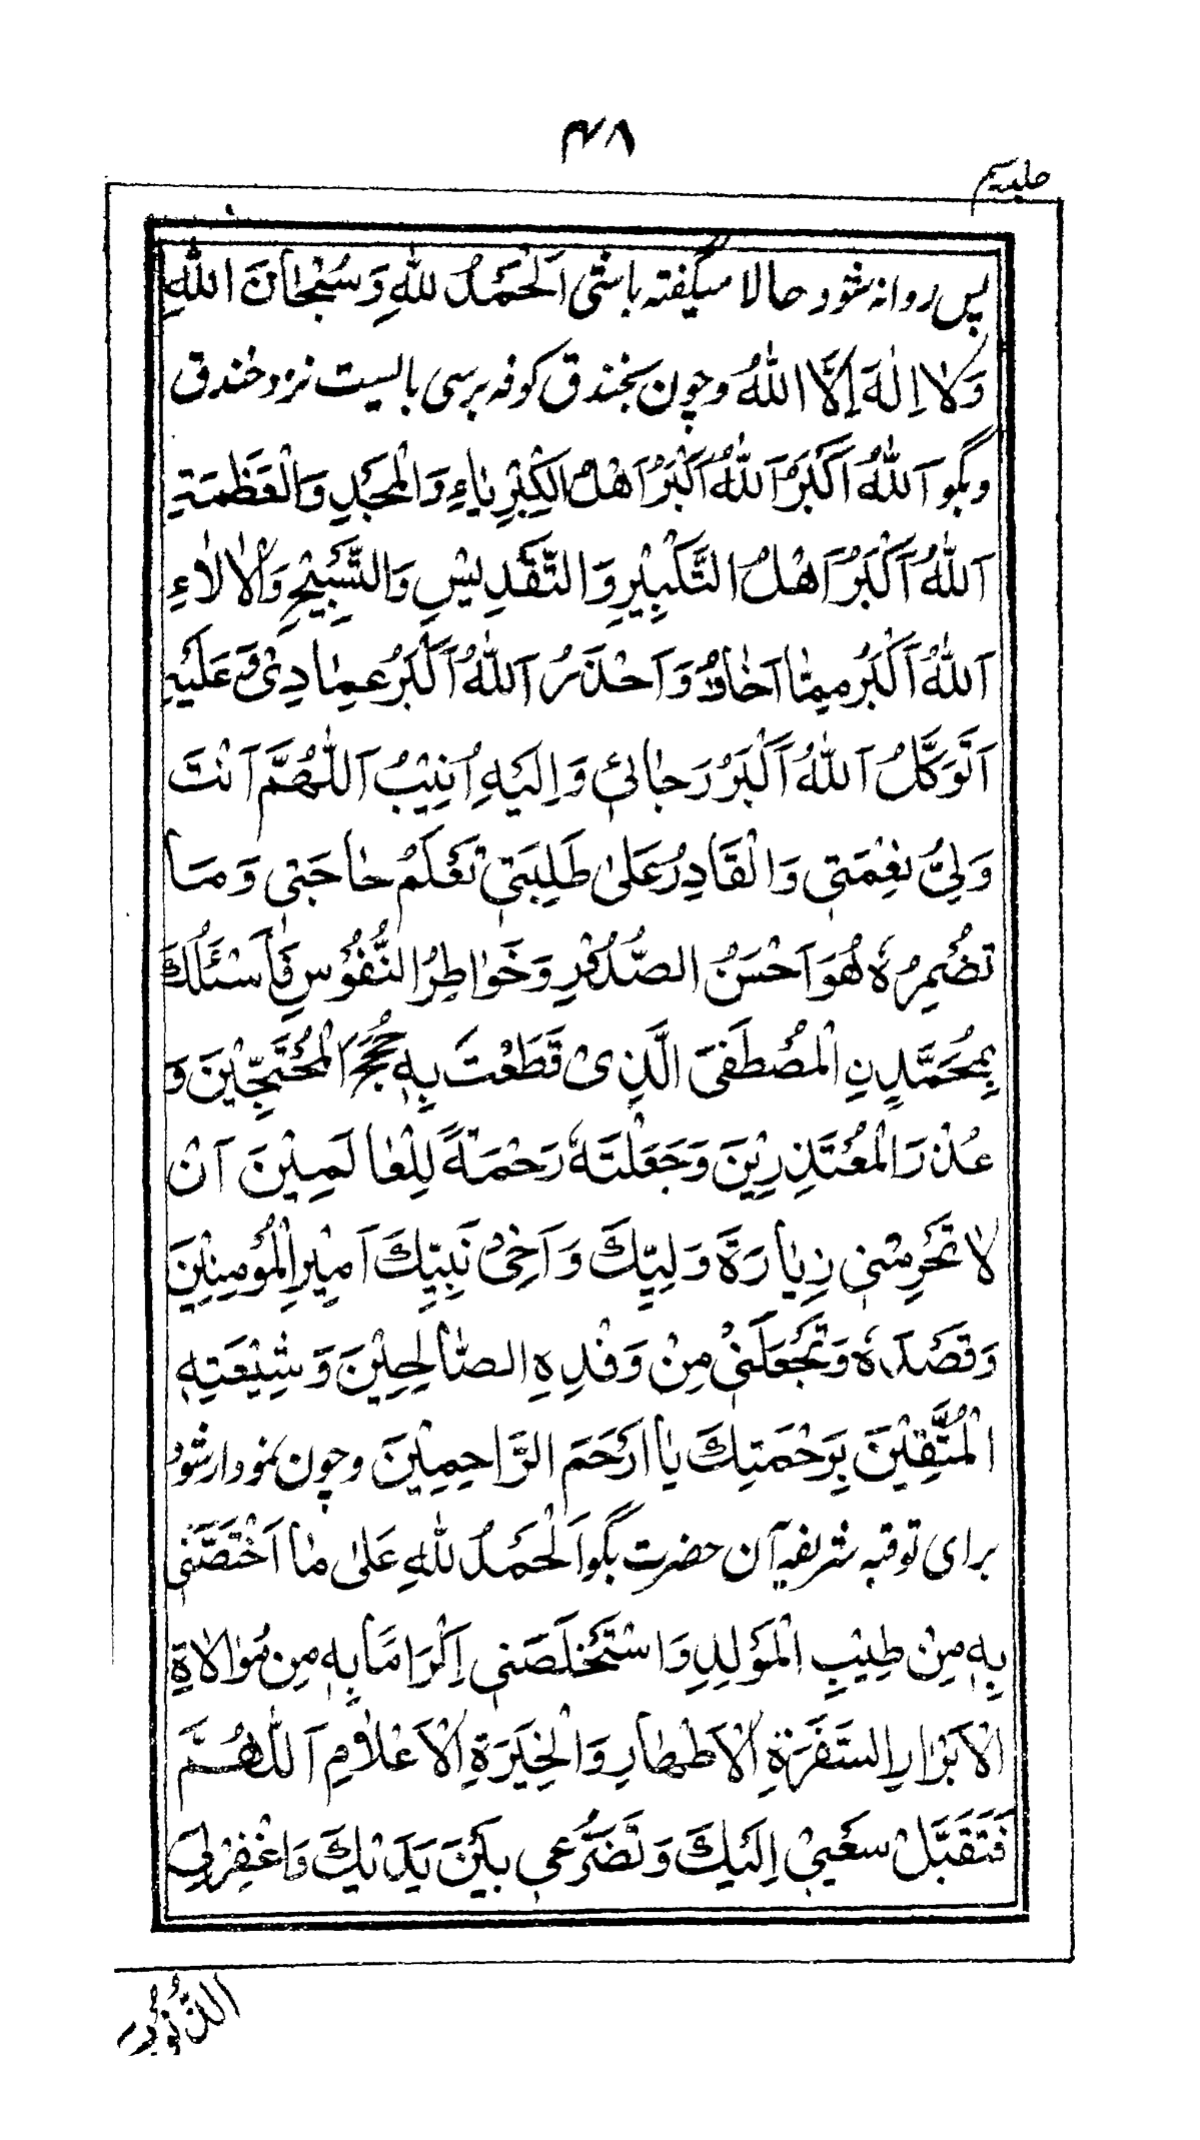 ۴۸
جلد سیم
پس روانه شود حالا میگفته باشی اَلْحَمْدُ لِلّٰهِ وَسُبْحٰانَ اللّٰهِ
وَلٰا اِلٰهَ اِلَّا اللّٰهُ و چون بخندق کوفه برسی بایست نزد خندق
و بگو اَللّٰهُ اَكْبَرُ اَللّٰهُ اَكْبَرُ اَهْلُ الْكِبْرِيٰاءِ وَالْمَجْدِ وَالْعَظَمَةِ
اَللّٰهُ اَكْبَرُ اَهْلُ التَّكْبِيْرِ وَالتَّقْدِيْسِ وَالتَّسْبِيْحِ وَالْاٰلٰاءِ
اَللّٰهُ اَكْبَرُ مِمّٰا اَخٰافُ وَاَحْذَرُ اَللّٰهُ اَكْبَرُ عِمٰادِىْ وَعَلَيْهِ
اَتَوَكَّلُ اَللّٰهُ اَكْبَرُ رَجٰائِىْ وَاِلَيْهِ اُنِيْبُ اَللّٰهُمَّ اَنْتَ
وَلِىُّ نِعْمَتِىْ وَالْقَادِرُ عَلٰى طَلِبَتِىْ تَعْلَمُ حٰاجَتِىْ وَمَا
تُضْمِرُهٗ هُوَاجِسُ الصُّدُوْرِ وَخَوٰاطِرُ النُّفُوْسِ فَاَسْئَلُكَ
بِمُحَمَّدٍ نِ الْمُصْطَفىَ الَّذِىْ قَطَعْتَ بِهٖ حُجَجَ الْمُحْتَجِّيْنَ وَ
عُذْرَ الْمُعْتَذِرِيْنَ وَجَعَلْتَهٗ رَحْمَةً لِلْعٰالَمِيْنَ اَنْ
لٰا تَحْرِمْنِىْ زِيٰارَةَ وَلِيِّكَ وَاَخِىْ نَبِيِّكَ اَمِيْرِ الْمُؤْمِنِيْنَ
وَقَصْدَهٗ وَتَجْعَلَنِىْ مِنْ وَفْدِهِ الصّٰالِحِيْنَ وَشِيْعَتِهِ
الْمُتَّقِيْنَ بِرَحْمَتِكَ يٰا اَرْحَمَ الرَّاحِمِيْنَ و چون نمودار شود
برای تو قبه شریفه آن حضرت بگو اَلْحَمْدُ لِلّٰهِ عَلٰى مٰا اَخْتَصَّنِىْ
بِهٖ مِنْ طِيْبِ الْمَوْلِدِ وَاسْتَخْلَصَنِىْ اِكْرَامًا بِهٖ مِنْ مُوٰالٰاةِ
الْاَبْرٰارِ السَّفَرَةِ الْاَطْهٰارِ وَالْخِيَرَةِ الْاَعْلٰامِ اَللّٰهُمَّ
فَتَقَبَّلْ سَعْيِىْ اِلَيْكَ وَتَضَرُّعِى بَيْنَ يَدَيْكَ وَاغْفِرْلِىَ
الذُّنُوْبَ